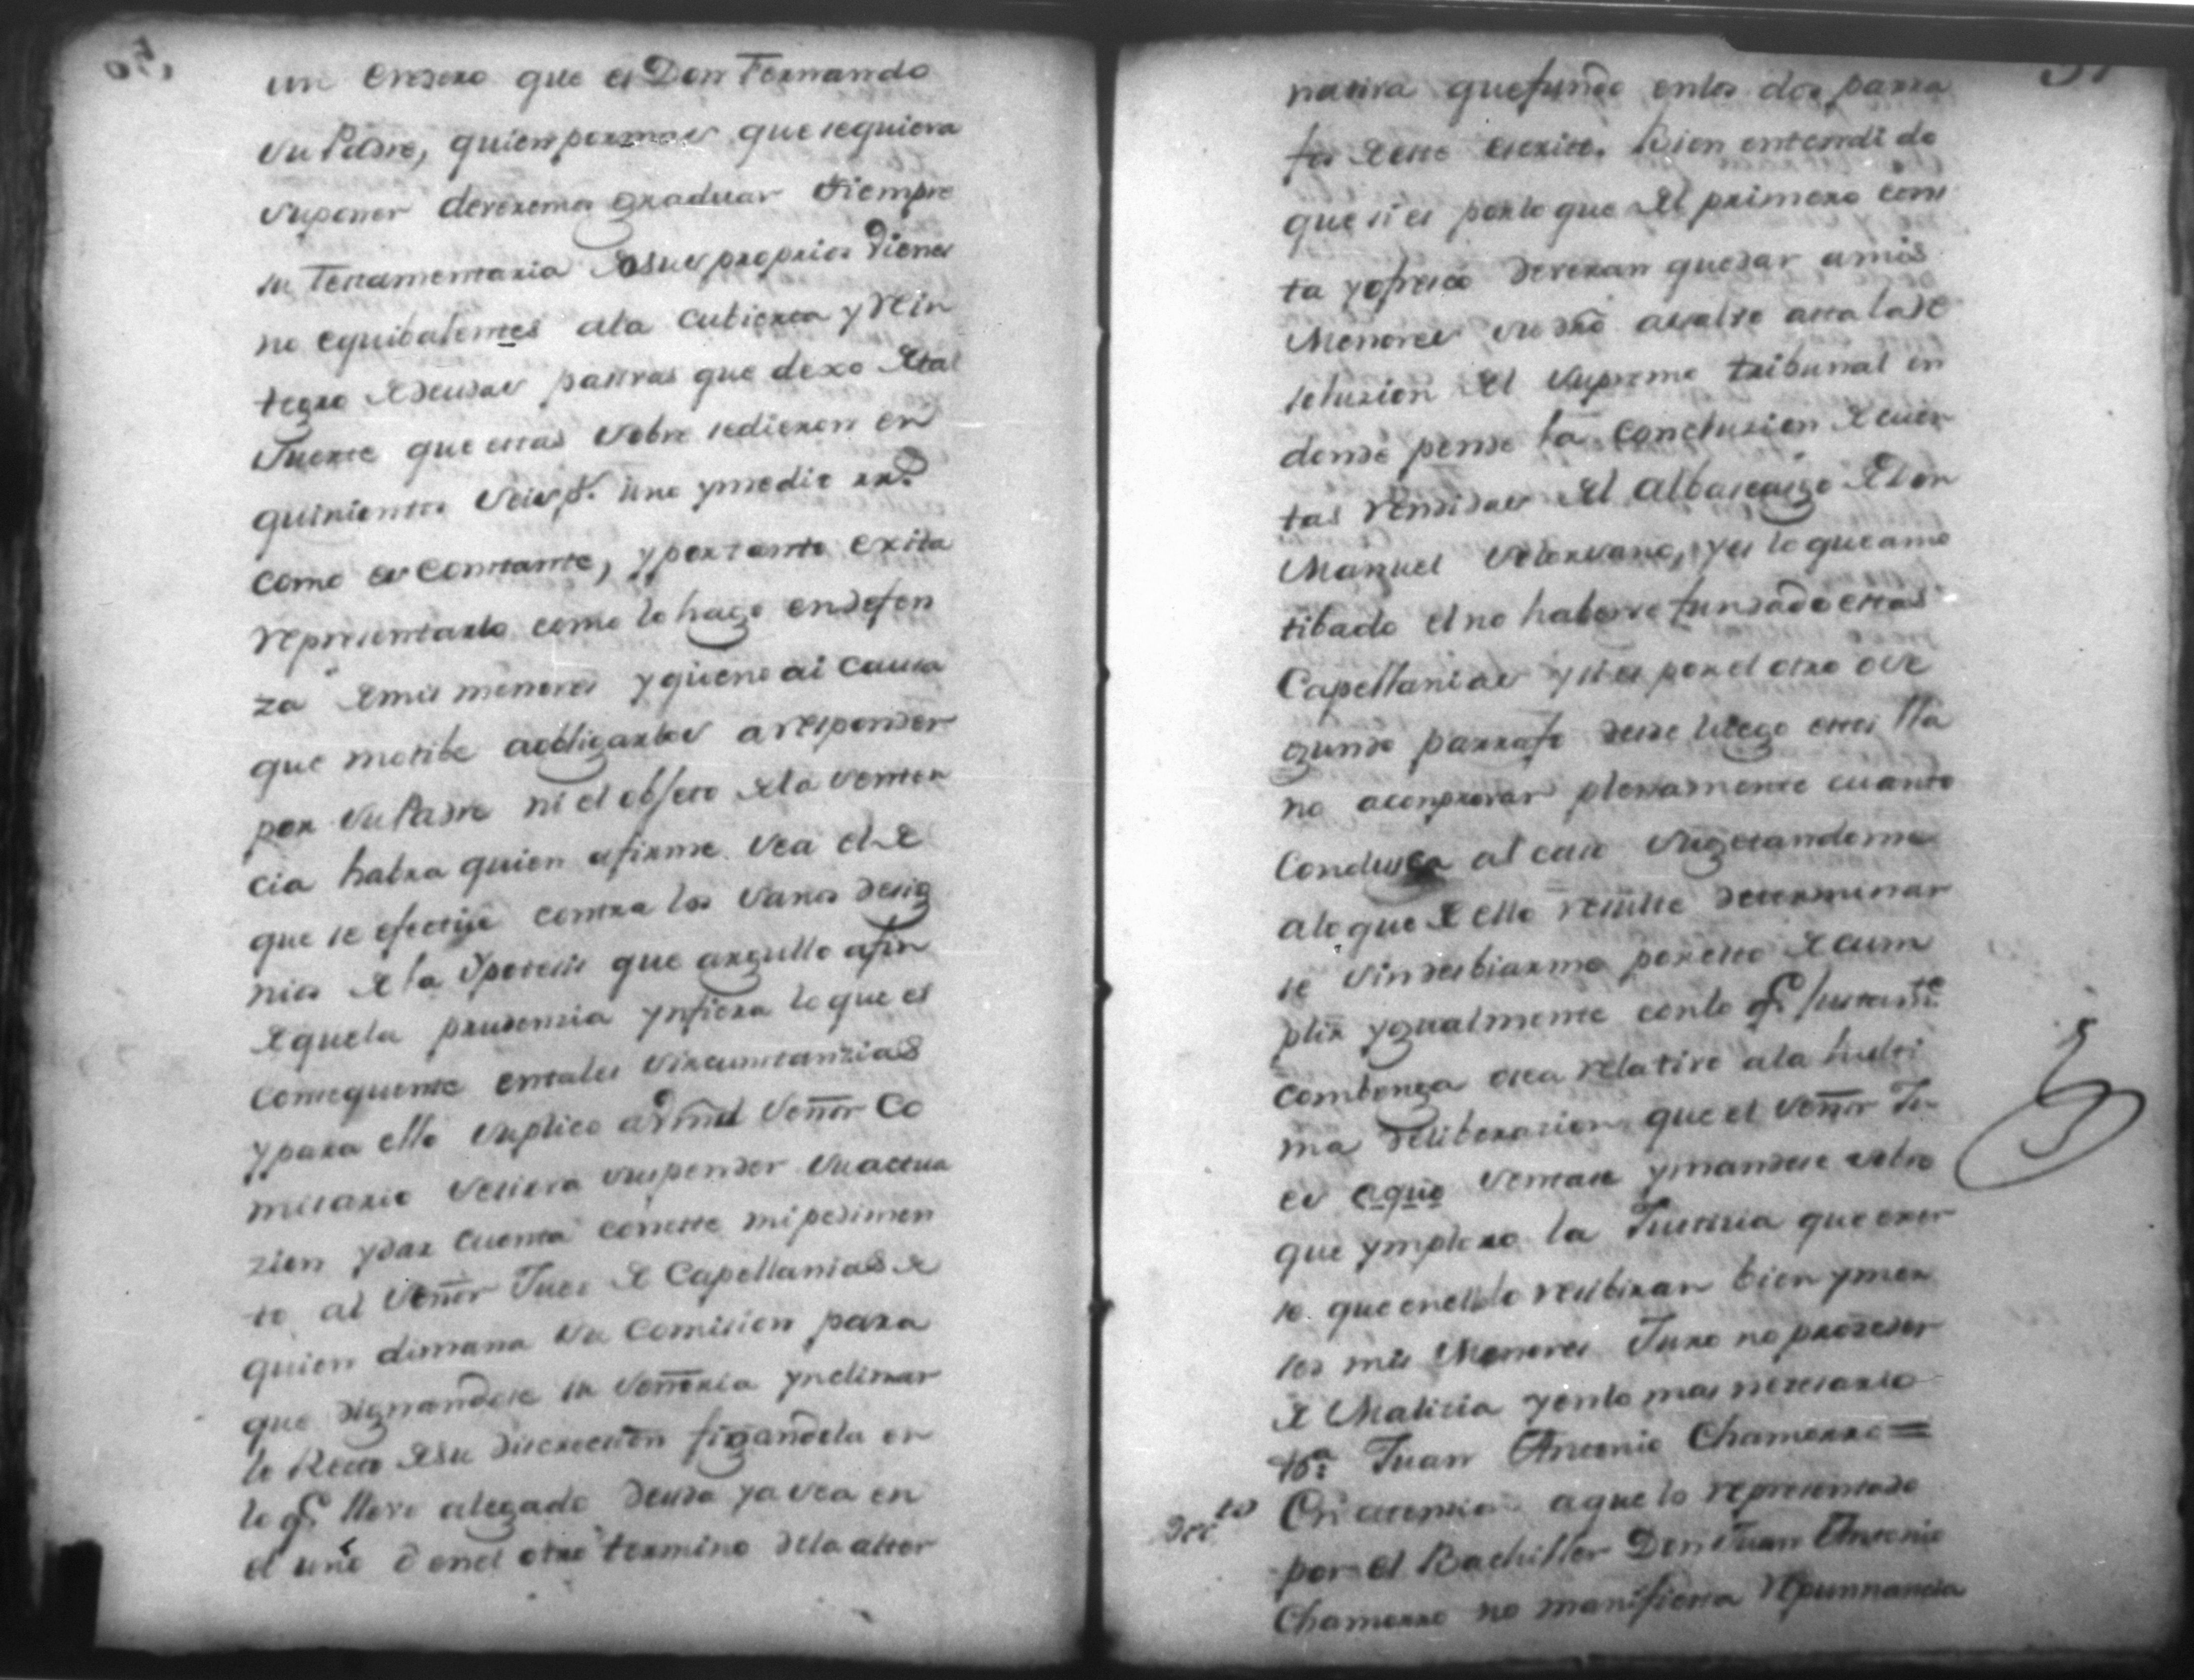 un eredero que es Don Fernando
su Padre, quien por mas que se quiera
suponer deveremos graduar siempre
su Testamentaria de sus proprios vienes
no equibalentes a la cubierta y rein
tegro de deudas pasivas que dexo de tal
Suerte que estas sobre sedieron en
quinientos seis ps. uno y medio rrs.
como es constante, y por tanto exita
representarlo como lo hago en defen
za de mis menores y que no ai causa
que motibe a obligarlos a responder
por su Padre ni el obseto de la senten
cia habra quien afirme sea el de
que se efectue contra los vanos desig
nios de la Ypotesis que argullo a fin
de que la prudencia ynfiera lo que es
consequente en tales sircunstanzias
y para ello suplico a Vmd Señor Co
misario se sirva suspender su actua
zion y dar cuenta con este mi pedimen
to al Señor Juez de Capellanias de
quien dimana su Comision para
que dignandose su Señoria ynclinar
lo Recto de su discrecion figandola en
lo q. llevo alegado deuda ya sea en
el uno ó en el otro termino de la alter
51
nativa que fundo en los dos parra
fos de este escrito. Bien entendido
que si es por lo que del primero cons
ta y ofresco deveran quedar a mis
Menores su dro a salvo asta la re
soluzion del Supremo tribunal en
donde pende la conclusion de cuen
tas rendidas del albaseasgo de Don
Manuel Solorzano, y es lo que a mo
tibado el no haberse fundado estas
Capellanias y si es por el otro o se
gundo parrafo desde luego estoi lla
no a conprovar plenamente cuanto
Condusca al caso sugetandome
a lo que de ello resulte determinar
se sin desbiarme por esto de cum
plir ygualmente con lo q. Justamte.
combenga osea relativo a la hulti
ma deliberazion que el Señor Ju
es a quo sentase y mandese sobre
que ymploro la Justicia que exer
se que en ello resibiran bien y mer
sed mis Menores Juro no proceder
de Malicia y en lo mas necesario
Va. Juan Antonio Chamorro =
Decto En atensio a que lo representado
por el Bachiller Don Juan Antonio
Chamorro no manifiesta repunnancia